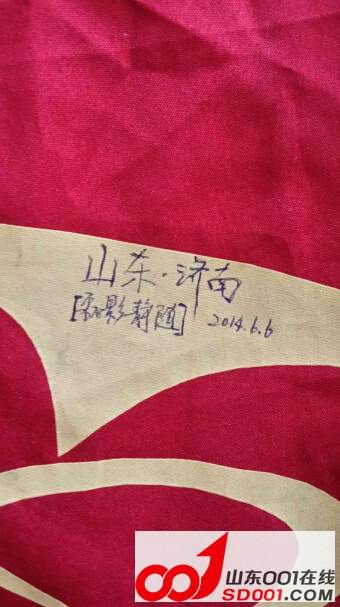 山东·济南
[和影静随] 2014.6.6
山东001在线
SD001.COM